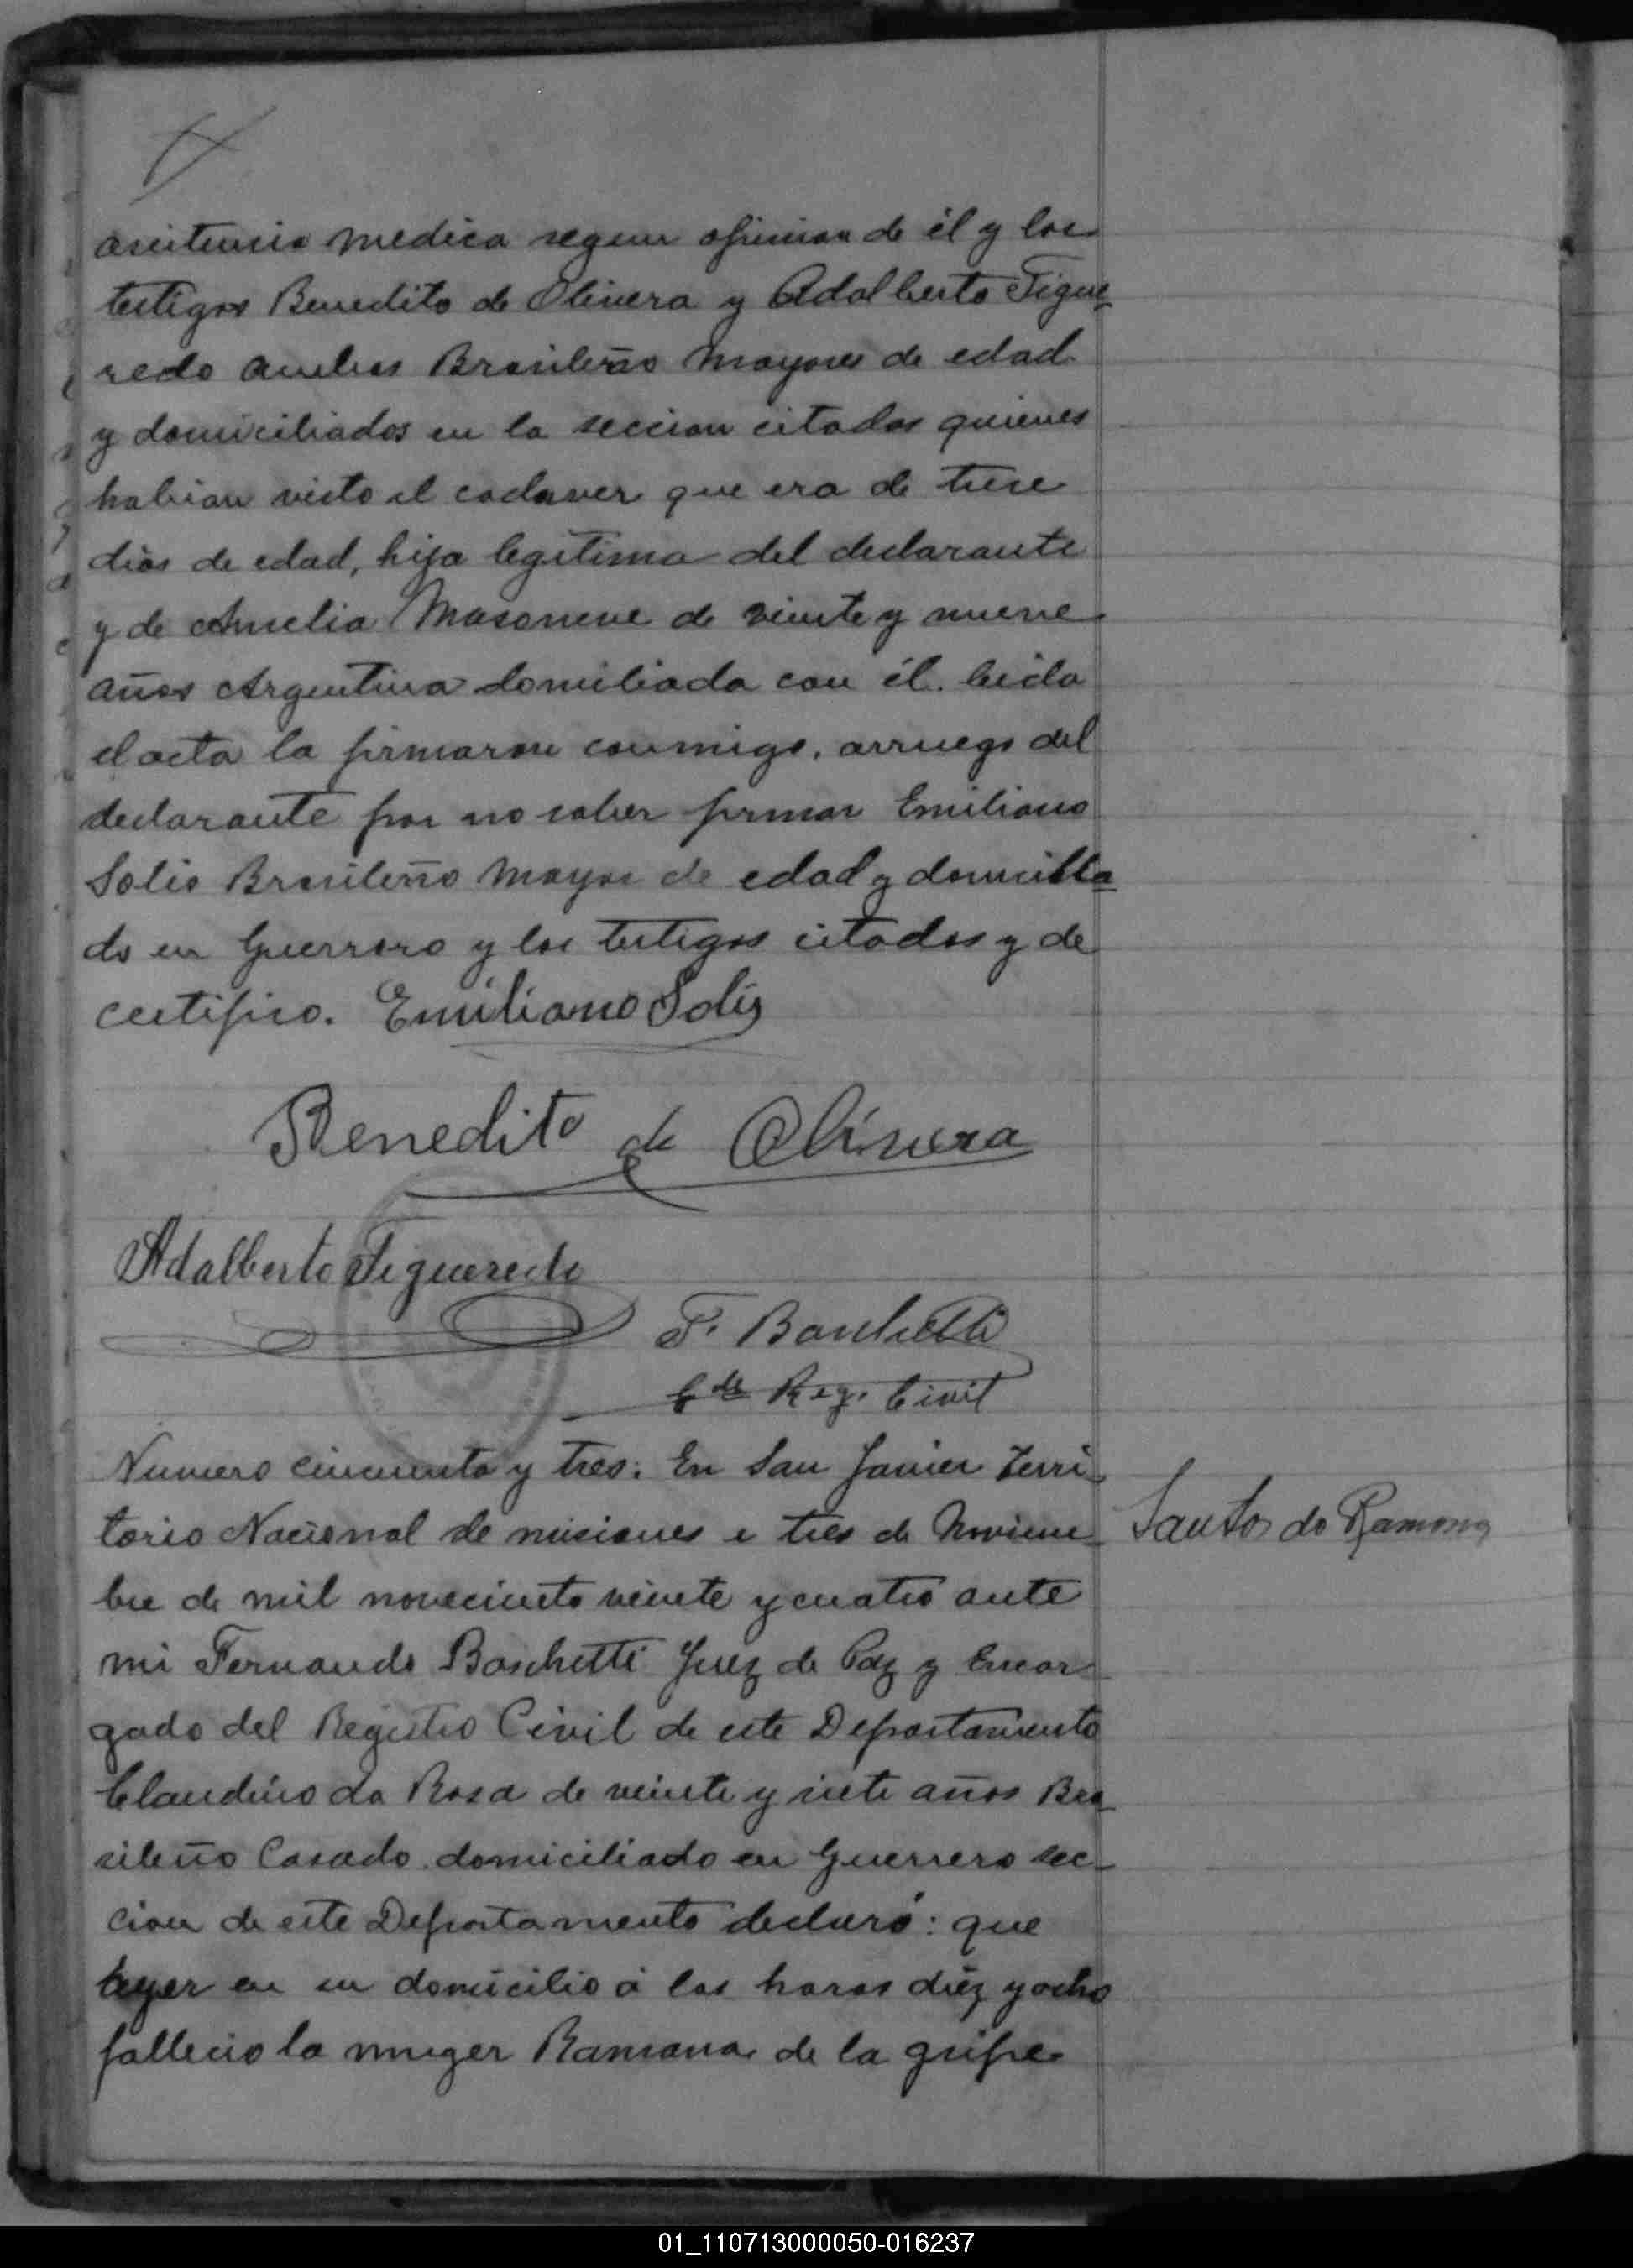 asistensia medica segun opinion de él y los
testigos Benedito de Olivera y Adalberto Figue-
redo ambos Brasileño mayores de edad
y domiciliados en la seccion citadas quienes
habian visto el cadaver que era de trese
dias de edad, hija legitima del declarante
y de Amelia de veinte y nueve
años Argentina domiliada con él. leida
el acta la firmaron conmigo, arruego del
declarante por no saber firmar Emiliano
Solis Brasileño mayor de edad y domicilia
do en Guerrero y los testigos citados y de
certifico. Emiliano Solis
Benedito de Olivera
Adalberto Figueredo
F. Boschetti
Reg. Civil
Numero cincuenta y tres: En San Javier Terri-
torio Nacional de misiones a tres de Noviem-
Santos do Ramona
bre de mil noveciento veinte y cuatro ante
mi Fernando Boschetti Juez de Paz y Encar-
gado del Registro Civil de este Departamento
Claudino da Rosa de veinte y siete años Bra-
sileño Casado domiciliado en Guerrero sec-
cion de este Departamento declaró: que
ayer en su domicilio á las horas diéz y ocho
fallecio la muger Ramona de la gripe
01_110713000050-016237